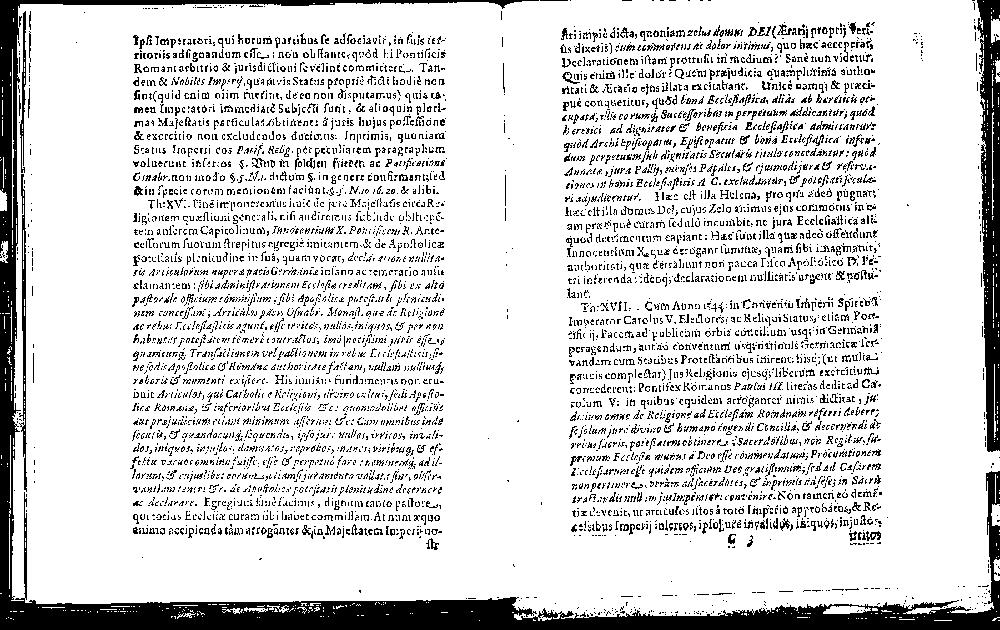 Ipsi Imperatori, qui horum partibus se adsociavit, in suis ter-
ritoriis adsignandum esse; non obstante, quòd hi Pontificis
Romani arbitrio & jurisdictioni se velint committere. Tan-
dem & Nobiles Imperij, quamvis Status propriè dicti hodiè non
sint (quid enim olim fuerint, de eo non disputamus) quia ta-
men Imperatori immediatè Subjecti sunt, & alioquin pluri-
mas Majestatis particulas obtinent: à juris hujus possessione
& exercitio non excludendos ducimus. Inprimis, quoniam
Status Imperii eos Pacif. Relig. per peculiarem paragraphum
voluerunt insertos §. Und in solchen frieden ac Pacificatione
Osnabr. non modò §. 5. N. 1. dictum §. in genere confirmant, sed
& in specie eorum mentionem faciunt. §. 5. N. 10. 18. 20. & alibi.
Th: XV. Finè imponerentius huic de jure Majestatis circa Re-
ligionem quæstioni generali, nisi audiremus subinde obstrepẽ-
tem anserem Capitolinum, Innocentium X. Pontificem R. Ante-
cessorum suorum strepitus egregiè imitantem, & de Apostolicæ
potestatis plenitudine in suâ, quam vocat, declaratione nullita-
tis Articulorum nuperæ pacis Germaniæ insano ac temerario ausu
clamantem: sibi administrationem Ecclesiæ creditam, sibi ex alto
pastorale officium cõmissum; sibi Apostolicæ potestatis plenitudi-
nem concessam; Articulos pacis Osnabr. Monast. quæ de Religione
ac rebus Ecclesiasticis agunt, esse irritos, nullos, iniquos, & per non
habentes potestatem temerè contractos, imò potestati juris esse
quamcunq; Transactionem vel pactionem in rebus Ecclesiasticis, si-
ne sedis Apostolicæ & Romanæ authoritate factam, nullam, nulliusq;
roboris & momenti existere. His innixus fundamentis non eru-
buit Articulos, qui Catholicæ Religioni, divino cultui, sedi Aposto-
licæ Romanæ, & inferioribus Ecclesiis &c: quomodolibet officiũt
aut præjudicium etiam minimum afferunt &c: Cum omnibus inde
secutis, & quandocunq; sequendis, ipso jure nullos, irritos, invali-
dos, iniquos, injustos, damnatos, reprobos, inanes, viribusq; & ef-
fectu vacuos omninò fuisse, esse & perpetuò fore: neminemq; ad il-
lorum, & cujuslibet eorum, etiamsi juramento vallata sint, obser-
vantiam teneri &c. de Apostolicæ potestatis plenitudine decernere
ac declarare. Egregium sanè facinus, dignum tanto pastore,
qui totius Ecclesiæ curam sibi habet commissam. At num æquo
animo accipienda tàm arrogantèr & in Majestatem Imperij no-
str
stri impiè dicta, quoniam zelus domus DEI (Ærarij proprij veri-
ùs dixeris) eum commotens ac dolor intimus, quo hæc acceperat,
Declarationem istam protrusit in medium? Sanè non videtur.
Quis enim ille dolor? Quem præjudicia quamplurima autho-
ritati & Ærario ejus illata excitabant. Unicè namq; & præci-
puè conqueritur, quòd bona Ecclesiastica, aliàs ab hæreticis oc-
cupata, illis eorumq; Successoribus in perpetuum addicantur; quòd
hæretici ad dignitates & beneficia Ecclesiastica admittantur:
quòd Archi Episcopatus, Episcopatus & bona Ecclesiastica in feu-
dum perpetuum sub dignitatis Secularis titulo concedantur: quòd
Annatæ, jura Pallij, menses Papales, & ejusmodi jura & reserva-
tiones in bonis Ecclesiasticis A. C. excludantur, & potestati secula-
ri adjudicentur. Hæc est illa Helena, pro quâ adeò pugnat:
hæc est illa domus Dei, cujus Zelo animus ejus commotus in e-
am præcipuè curam sedulò incumbit, ne jura Ecclesiastica ali-
quod detrimentum capiant: Hæc sunt illa quæ adeò offendunt
Innocentium X. quæ derogant summæ, quam sibi imaginatur,
authoritati, quæ detrahunt non pauca Fisco Apostolico D. Pe-
tri inferenda: ideoq; declarationem nullitatis urgent & postu-
lant.
Th: XVII. Cum Anno 1544. in Conventu Imperii Spirensi
Imperator Carolus V. Electores, ac Reliqui Status, etiam Pon-
tificij, Pacem ad publicum orbis concilium usq; in Germaniâ
peragendum, aut ad conventum usq; nationis Germanicæ ser-
vandam cum Statibus Protestantibus inirent, hisq; (ut multa
paucis complectar) Jus Religionis ejusq; liberum exercitium
concederent: Pontifex Romanus Paulus III. literas dedit ad Ca-
rolum V: in quibus equidem arroganter nimis dictitat, ju-
dicium omne de Religione ad Ecclesiam Romanam referri debere;
se solum jure divino & humano cogendi Concilia, & decernendi de
rebus sacris, potestatem obtinere: Sacerdotibus, non Regibus, su-
premum Ecclesiæ munus à Deo esse commendatum; Procurationem
Ecclesiarum esse quidem officium Deo gratissimum; sed ad Cæsarem
non pertinere, verùm ad sacerdotes, & inprimis ad sese; in Sacris
tractandis nullum jus Imperatori convenire. Non tamen eò demẽ-
tiæ devenit, ut articulos istos à toto Imperio approbatos, & Re-
cessibus Imperij insertos, ipso jure invalidos, iniquos, injustos,
C 3
irritos